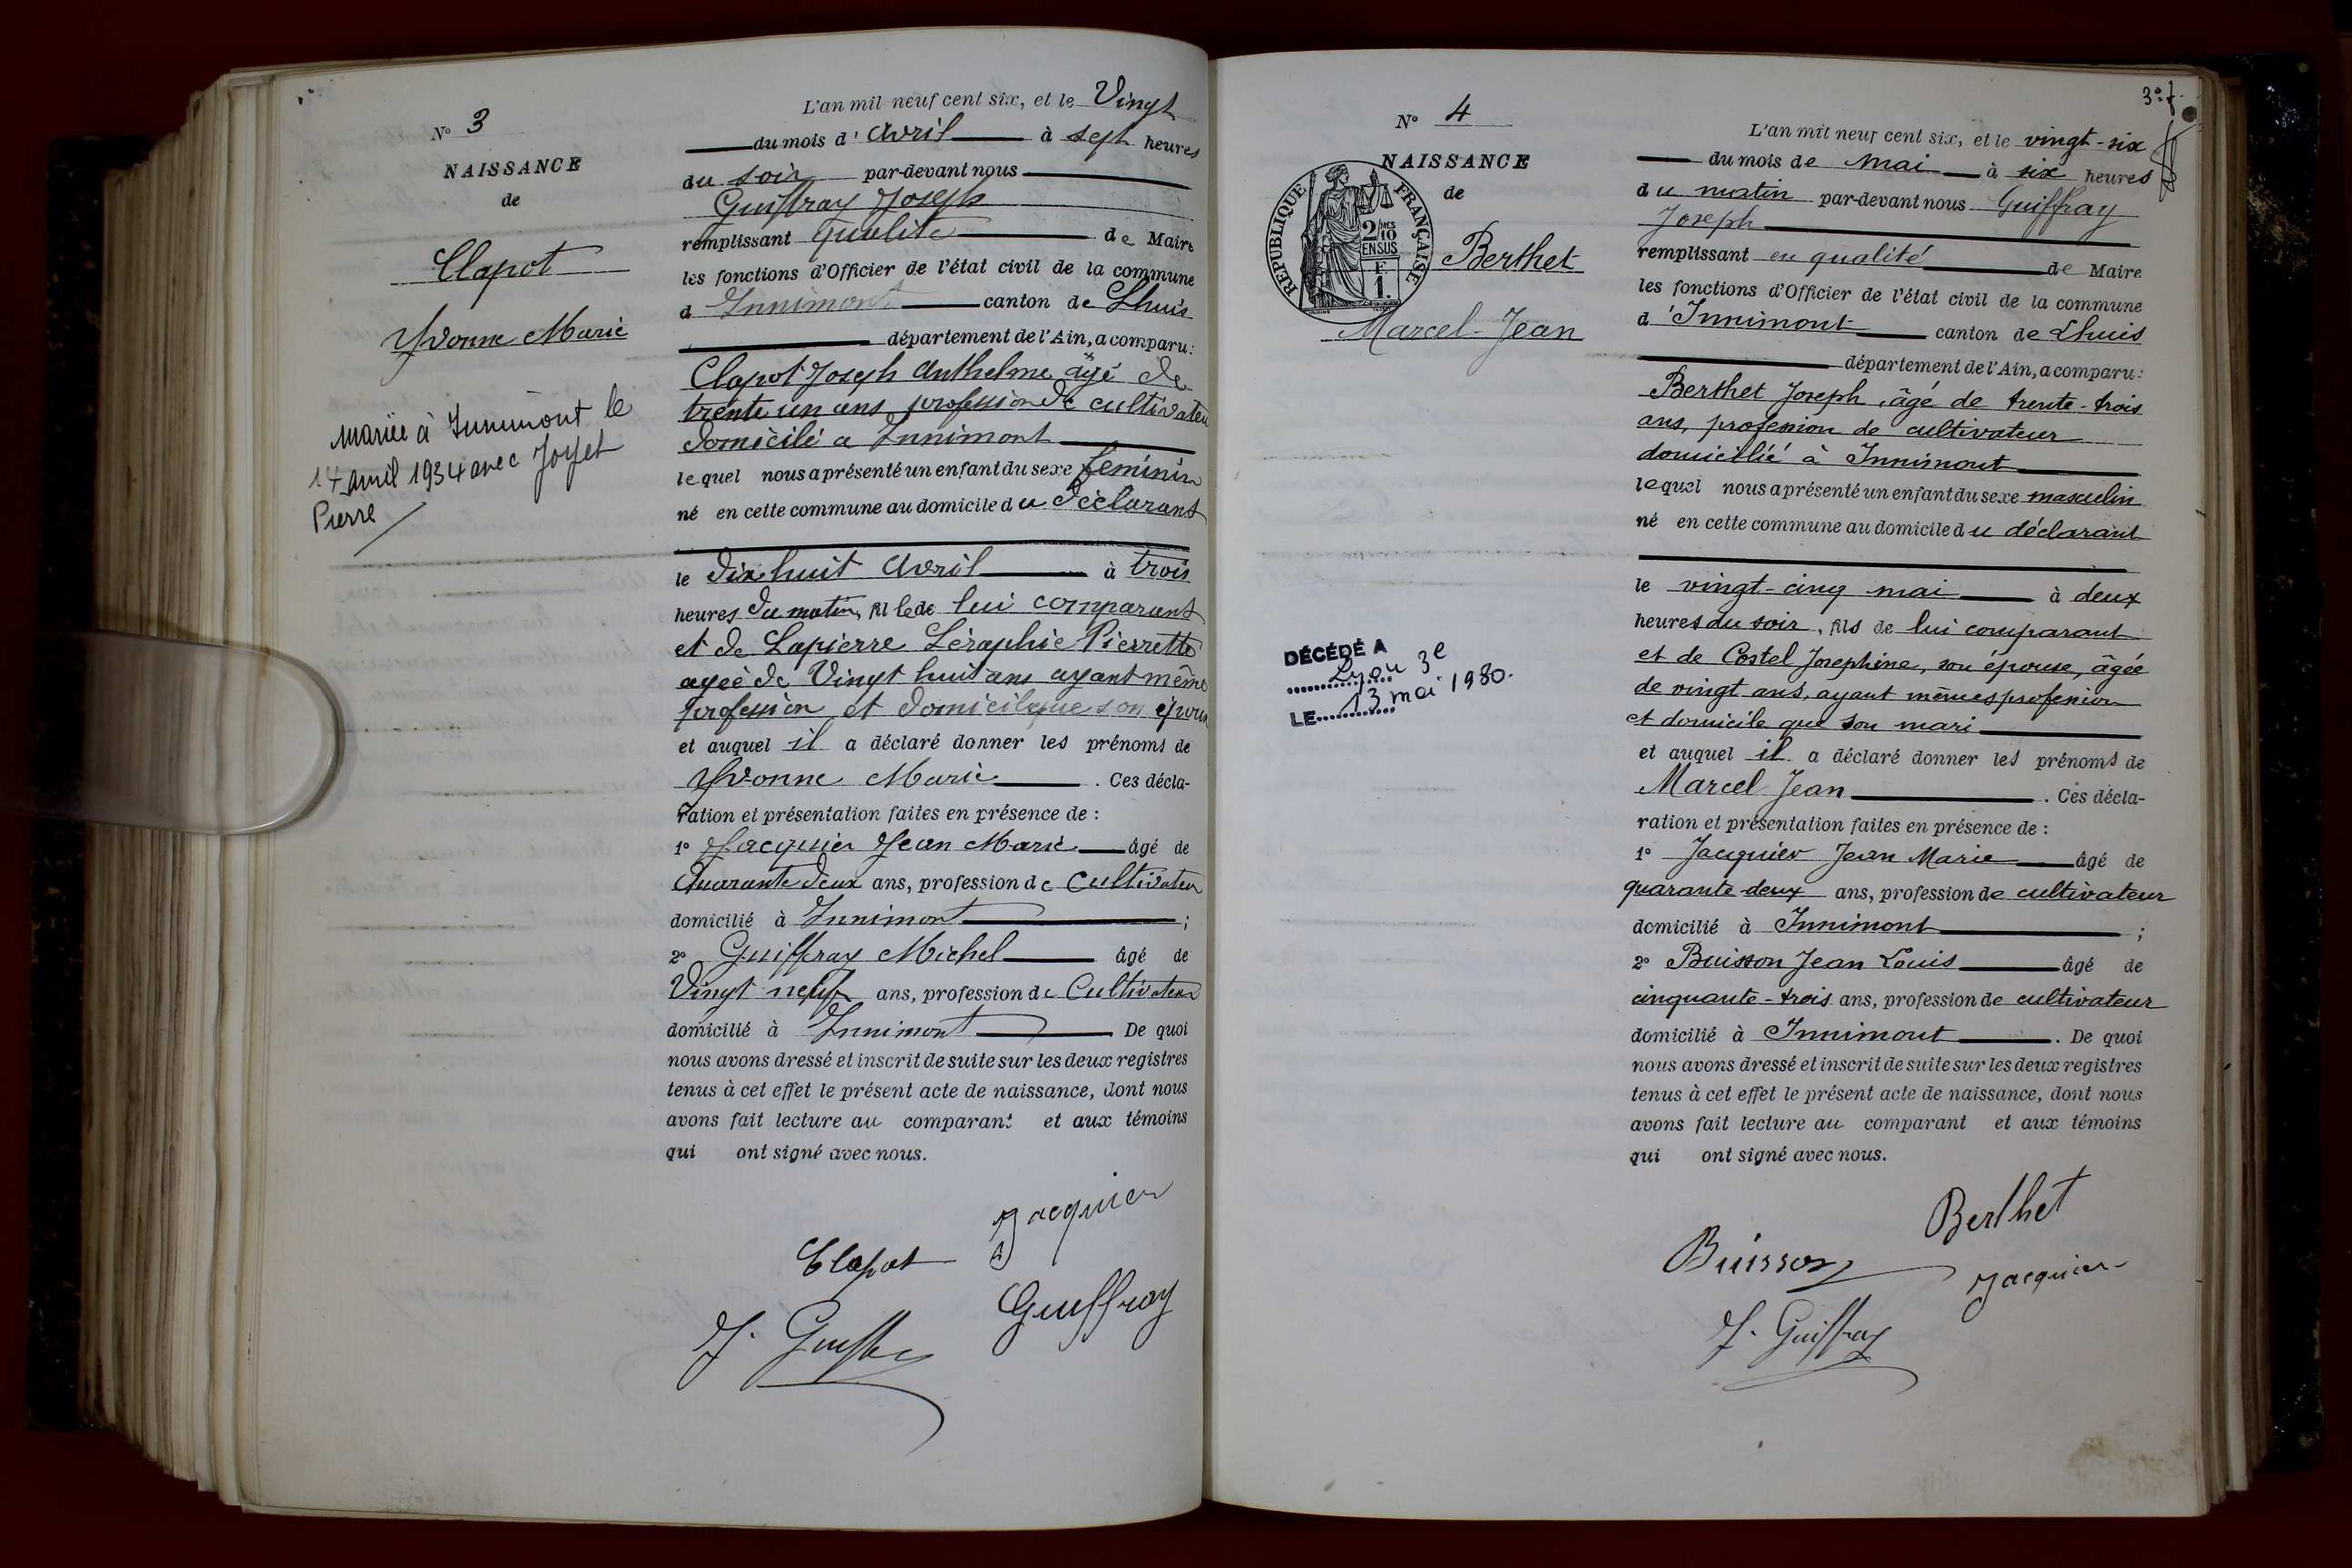 N° 3
NAISSANCE
de
Clapot
Yvonne Marie
Mariée à Innimont le
14 avril 1934 avec Joyet
Pierre
L'an mil neuf cent six, et le Vingt
du mois d' Avril à sept heures
du soir par-devant nous
Guiffray Joseph
remplissant qualité de Maire
les fonctions d'Officier de l'état civil de la commune
d Innimont canton de Lhuis
département de l'Ain, a comparu:
Clapot Joseph Anthelme âgé de
trente un ans profession de cultivateu
domicilié a Innimont
lequel nous a présenté un enfant du sexe feminin
né en cette commune au domicile du déclarant
le dix huit Avril à trois
heures du matin, fille de lui comparant
et de Lapierre Séraphie Pierrette
agée de Vingt huit ans ayant même
profession et domicile que son epoux
et auquel il a déclaré donner les prénoms de
Yvonne Marie . Ces décla-
ration et présentation faites en présence de :
1° Jacquier Jean Marie âgé de
Quarante deux ans, profession de Cultivateu
domicilié à Innimont ;
2° Guiffray Michel âgé de
Vingt neuf ans, profession de Cultivateur
domicilié à Innimont De quoi
nous avons dressé et inscrit de suite sur les deux registres
tenus à cet effet le présent acte de naissance, dont nous
avons fait lecture au comparant et aux témoins
qui ont signé avec nous.
Jacquier
Clapot
Guiffray
J. Guiffray
N° 4
NAISSANCE
de
REPUBLIQUE FRANÇAISE
2/10 MES
EN SUS
F.
1.
Berthet
Marcel-Jean
DÉCÉDÉ A
Lyon 3e
LE 13 mai 1980.
L'an mil neuf cent six, et le vingt-six
du mois de mai à six heures
du matin par-devant nous Guiffray
Joseph
remplissant en qualité de Maire
les fonctions d'Officier de l'état civil de la commune
d'Innimont canton de Lhuis
département de l'Ain, a comparu:
Berthet Joseph, âgé de trente-trois
ans, profession de cultivateur
domicilié à Innimont
lequel nous a présenté un enfant du sexe masculin
né en cette commune au domicile du déclarant
le vingt-cinq mai à deux
heures du soir, fils de lui comparant
et de Costel Josephine, son épouse, âgée
de vingt ans, ayant mêmes profession
et domicile que son mari
et auquel il a déclaré donner les prénoms de
Marcel Jean . Ces décla-
ration et présentation faites en présence de :
1° Jacquier Jean Marie âgé de
quarante-deux ans, profession de cultivateur
domicilié à Innimont ;
2° Buisson Jean Louis âgé de
cinquante-trois ans, profession de cultivateur
domicilié à Innimont . De quoi
nous avons dressé et inscrit de suite sur les deux registres
tenus à cet effet le présent acte de naissance, dont nous
avons fait lecture au comparant et aux témoins
qui ont signé avec nous.
Berthet
Buisson
Jacquier
J. Guiffray